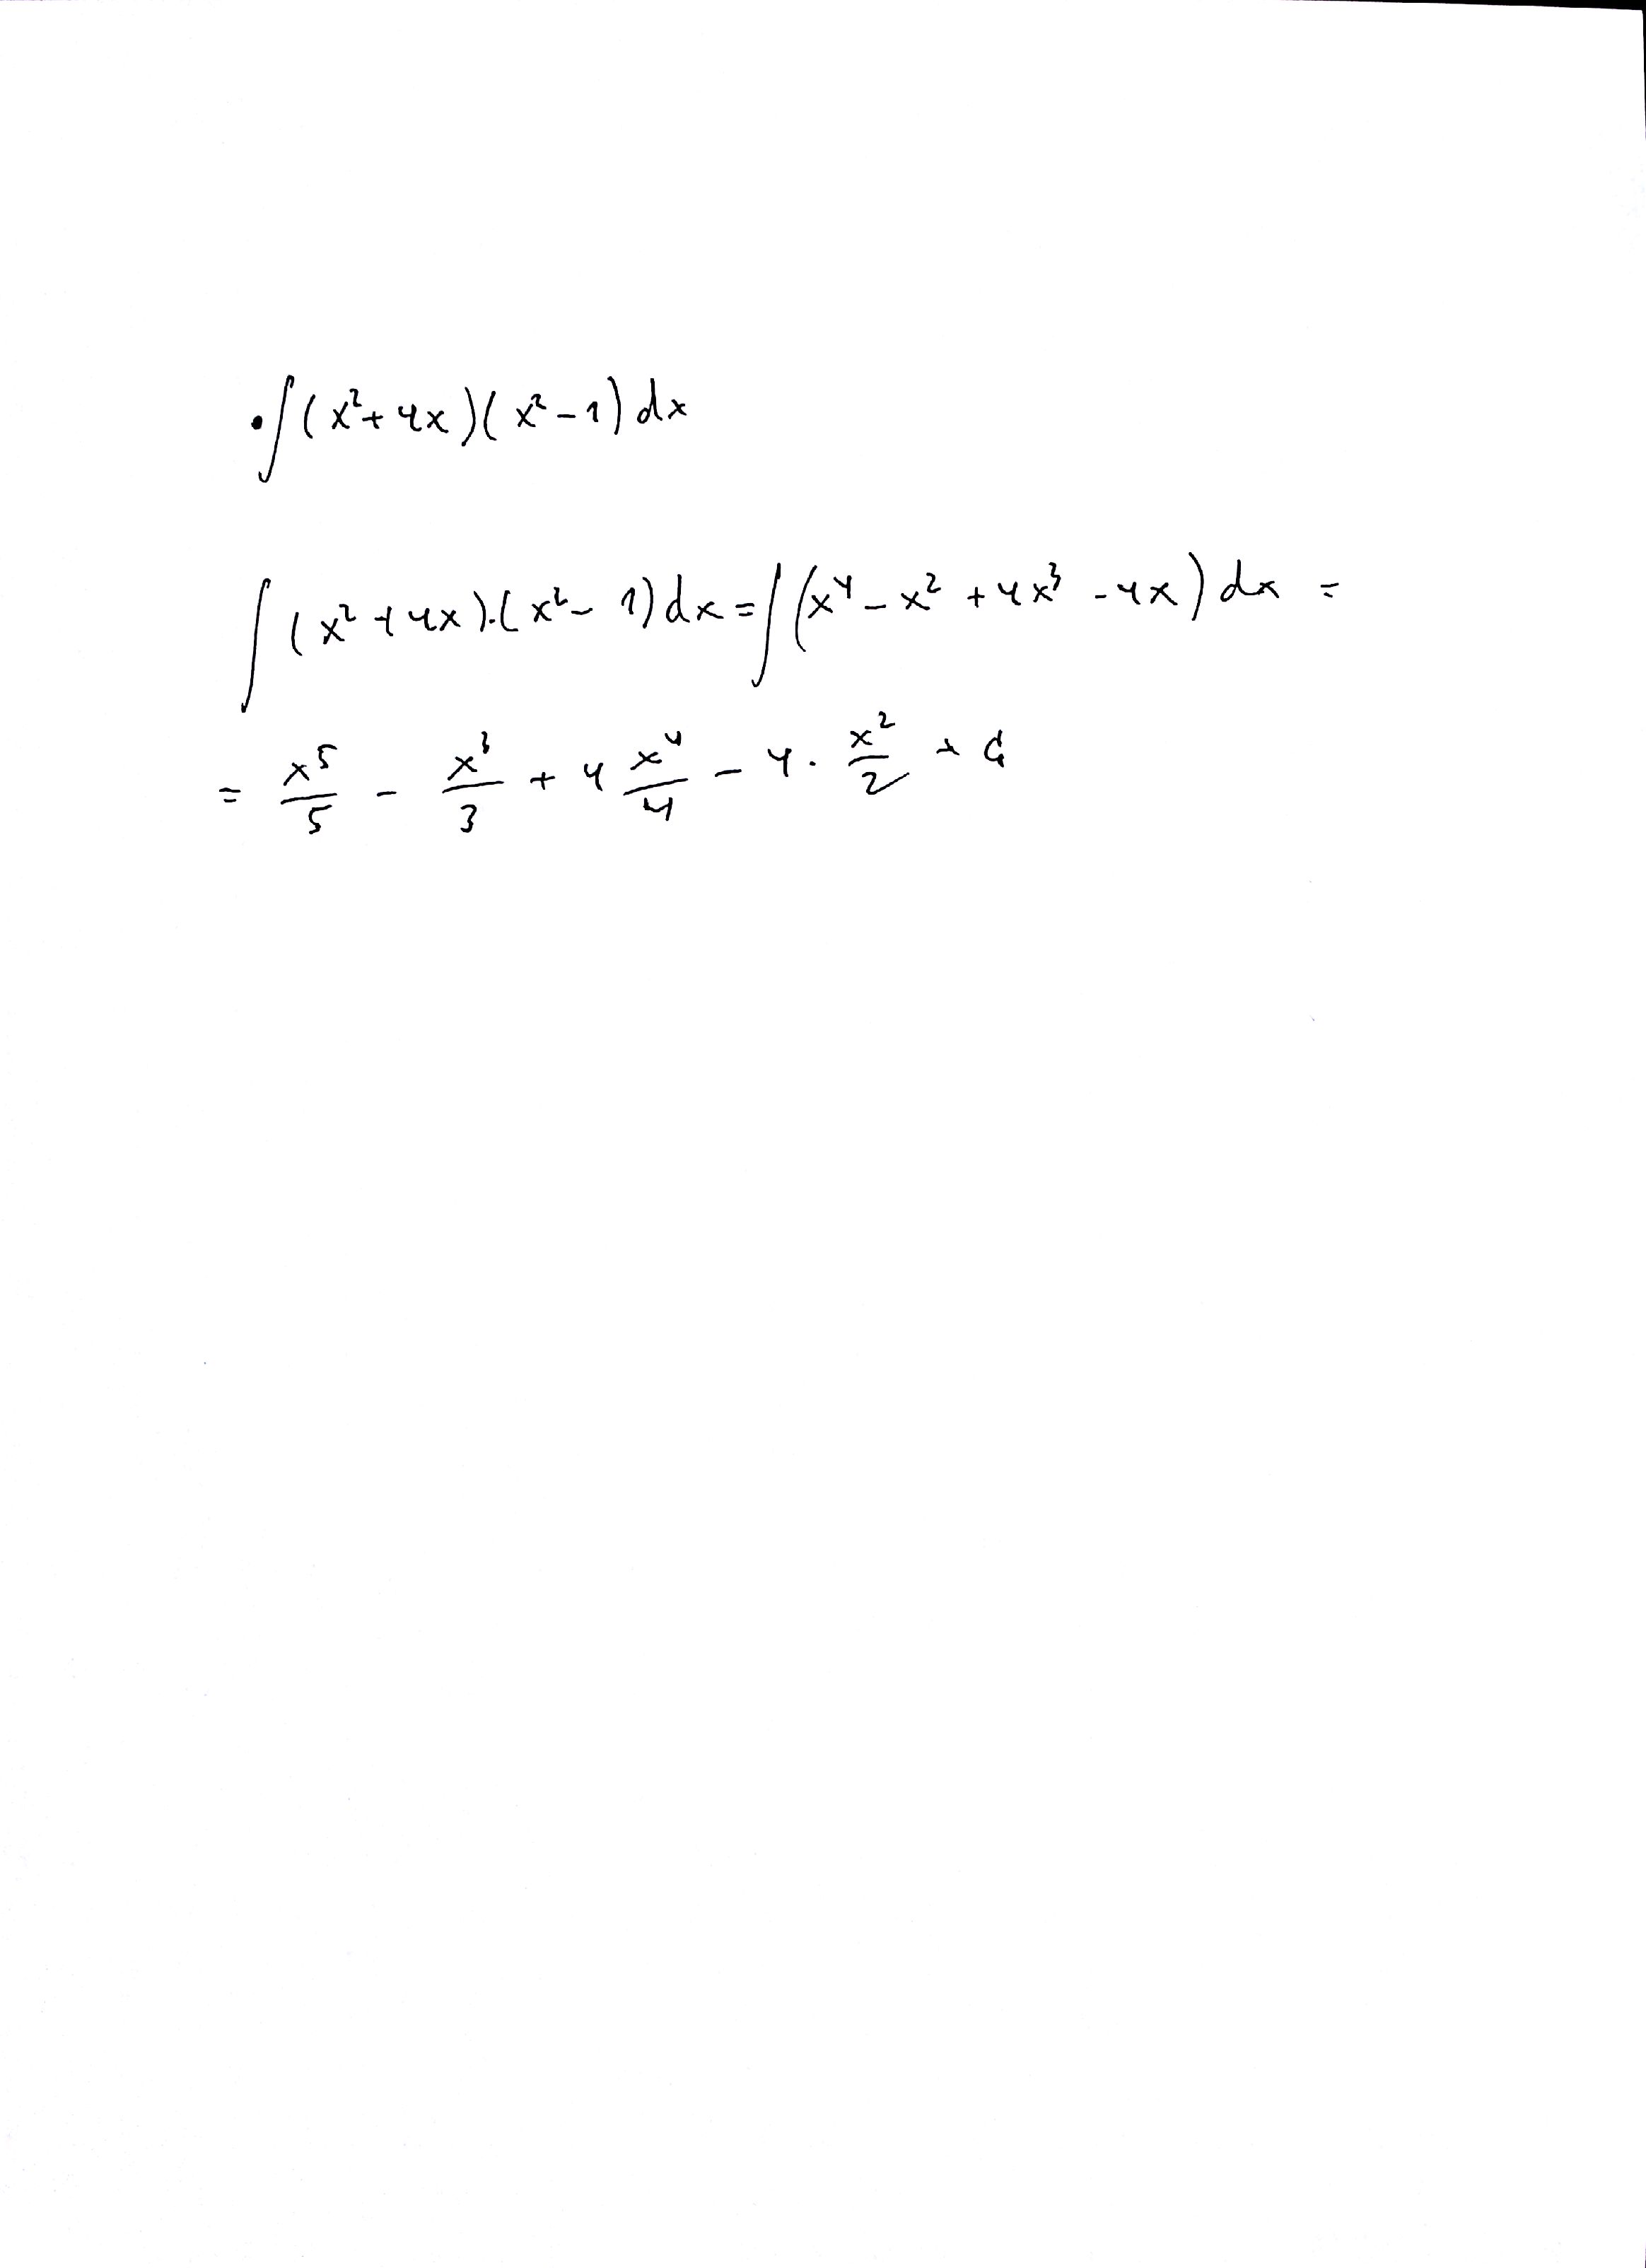 • ∫(x²+4x)(x²-1)dx
∫(x²+4x)·(x²-1)dx=∫(x⁴-x²+4x³-4x)dx =
= x⁵/5 - x³/3 + 4 x⁴/4 - 4· x²/2 + C